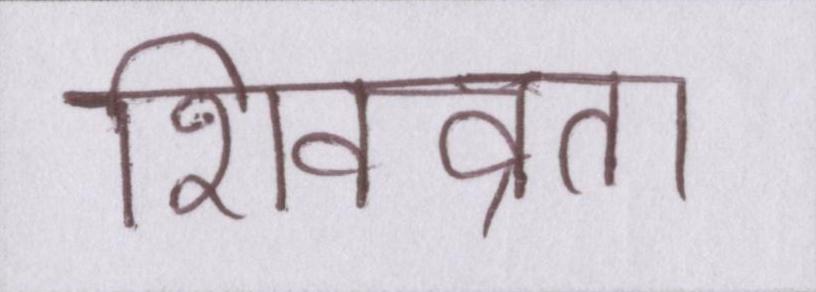 शिवव्रता